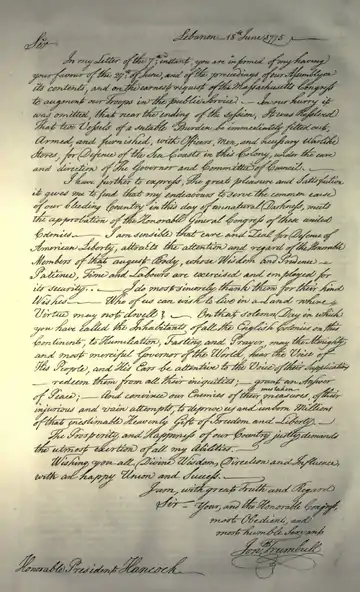 Lebanon 18th June 1775
Sir
In my Letter of the 7th instant, you are informed of my having
your favour of the of June, and of the proceedings of our Assembly on
its contents, and on the earnest request of the Massachusetts Congress
to augment our Troops in the public Service. In our hurry it
was omitted, that near the ending of the session, it was Resolved
That two Vessels of a suitable Burden be immediately fitted out,
Armed, and furnished, with Officers, Men, and necessary Warlike
Stores, for Defence of the Sea Coasts in this Colony, under the care
and direction of the Governor and Committee of Council.
I have further to express, the great pleasure and Satisfaction
it gives me to find that my endeavours to serve the common cause
of our bleeding Country in this day of unnatural Darkness, meets
the approbation of the Honorable General Congress of these united
Colonies — I am sensible that care and Zeal for Defence of
American Liberty, attracts the attention and regards of the Honorable
Members of that august Body, whose Wisdom and Prudence
Patience, Time and Labours are exercised and employed for
its security. — I do most sincerely thank them for their kind
Wishes — Who of us can wish to live in a Land where
Virtue may not dwell? — On that solemn Day in which
you have called the Inhabitants of all the English Colonies on this
Continent, to Humiliation, Fasting and Prayer, may the Almighty
and most merciful Governor of the World, hear the Voice of
His People, and His Ears be attentive to the Voice of their Supplications
— redeem them from all their iniquities; — grant an Answer
of Peace; — And convince our Enemies of their mistaken measures, of their
injurious and vain attempts, to deprive us and unborn Millions
of that inestimable Heavenly Gift of Freedom and Liberty. —
The Prosperity and Happiness of our Country justly demands
the utmost exertion of all my Abilities.
Wishing you all Divine Wisdom, Direction and Influence
with an happy Union and Success. —
I am, with great Truth and Regard
Sir — Your, and the Honorable Congress,
most Obedient, and
most humble Servant
Jonth Trumbull
Honorable President Hancock